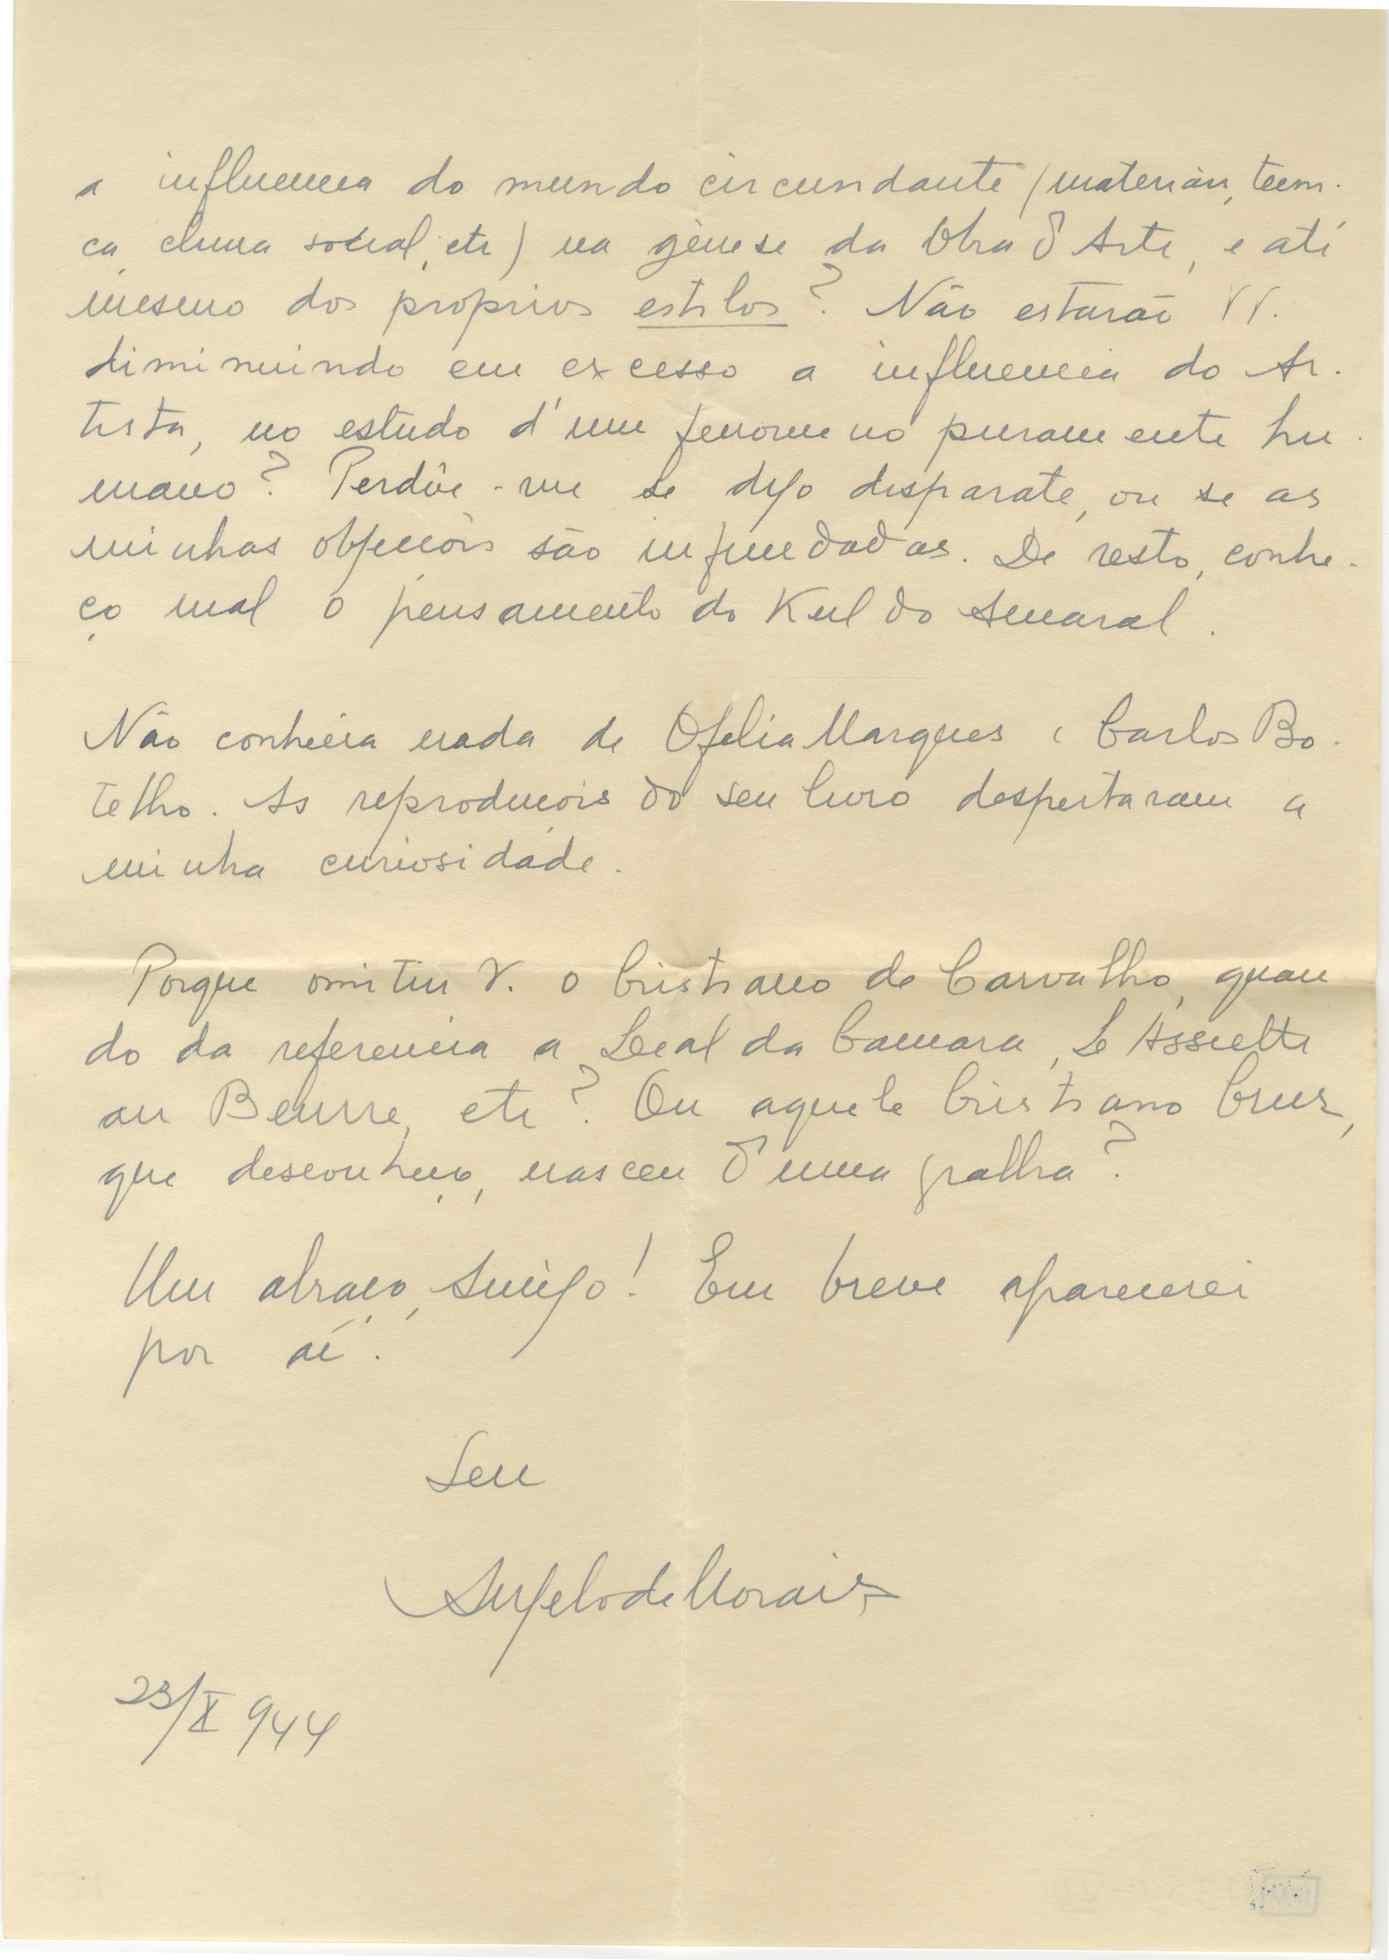 a influencia do mundo circundante (materiais, tecni-
ca, clima social, etc) na génese da Obra d'Arte, e até
mesmo dos proprios estilos? Não estarão VV.
diminuindo em excesso a influencia do Ar-
tista, no estudo d'um fenomeno puramente hu-
mano? Perdôe-me se digo disparate, ou se as
minhas objecções são infundadas. De resto, conhe-
ço mal o pensamento do Keil do Amaral.
Não conhecia nada de Ofelia Marques e Carlos Bo-
telho. As reproduções do seu livro despertaram a
minha curiosidade.
Porque omitiu V. o Cristiano de Carvalho, quan
do da referencia a Leal da Camara, L'Assiette
au Beurre, etc? Ou aquele Cristiano Cruz,
que desconheço, nasceu d'uma gralha?
Um abraço, Amigo! Em breve aparecerei
por aí.
Seu
Angelo de Morais
23/X 944